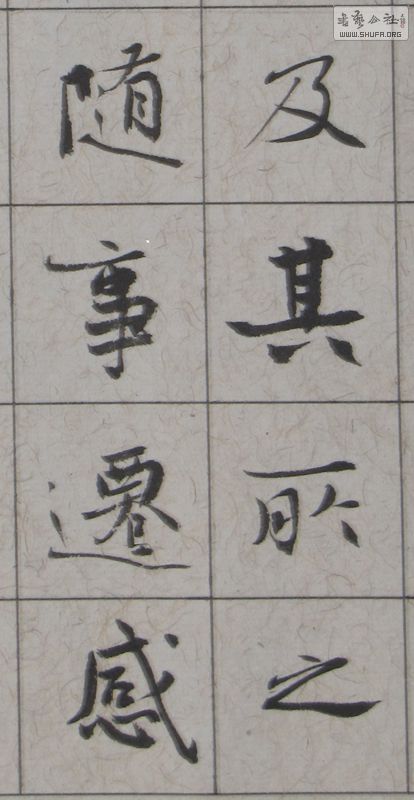 及其所之
随事遷感
書藝公社
WWW.SHUFA.ORG